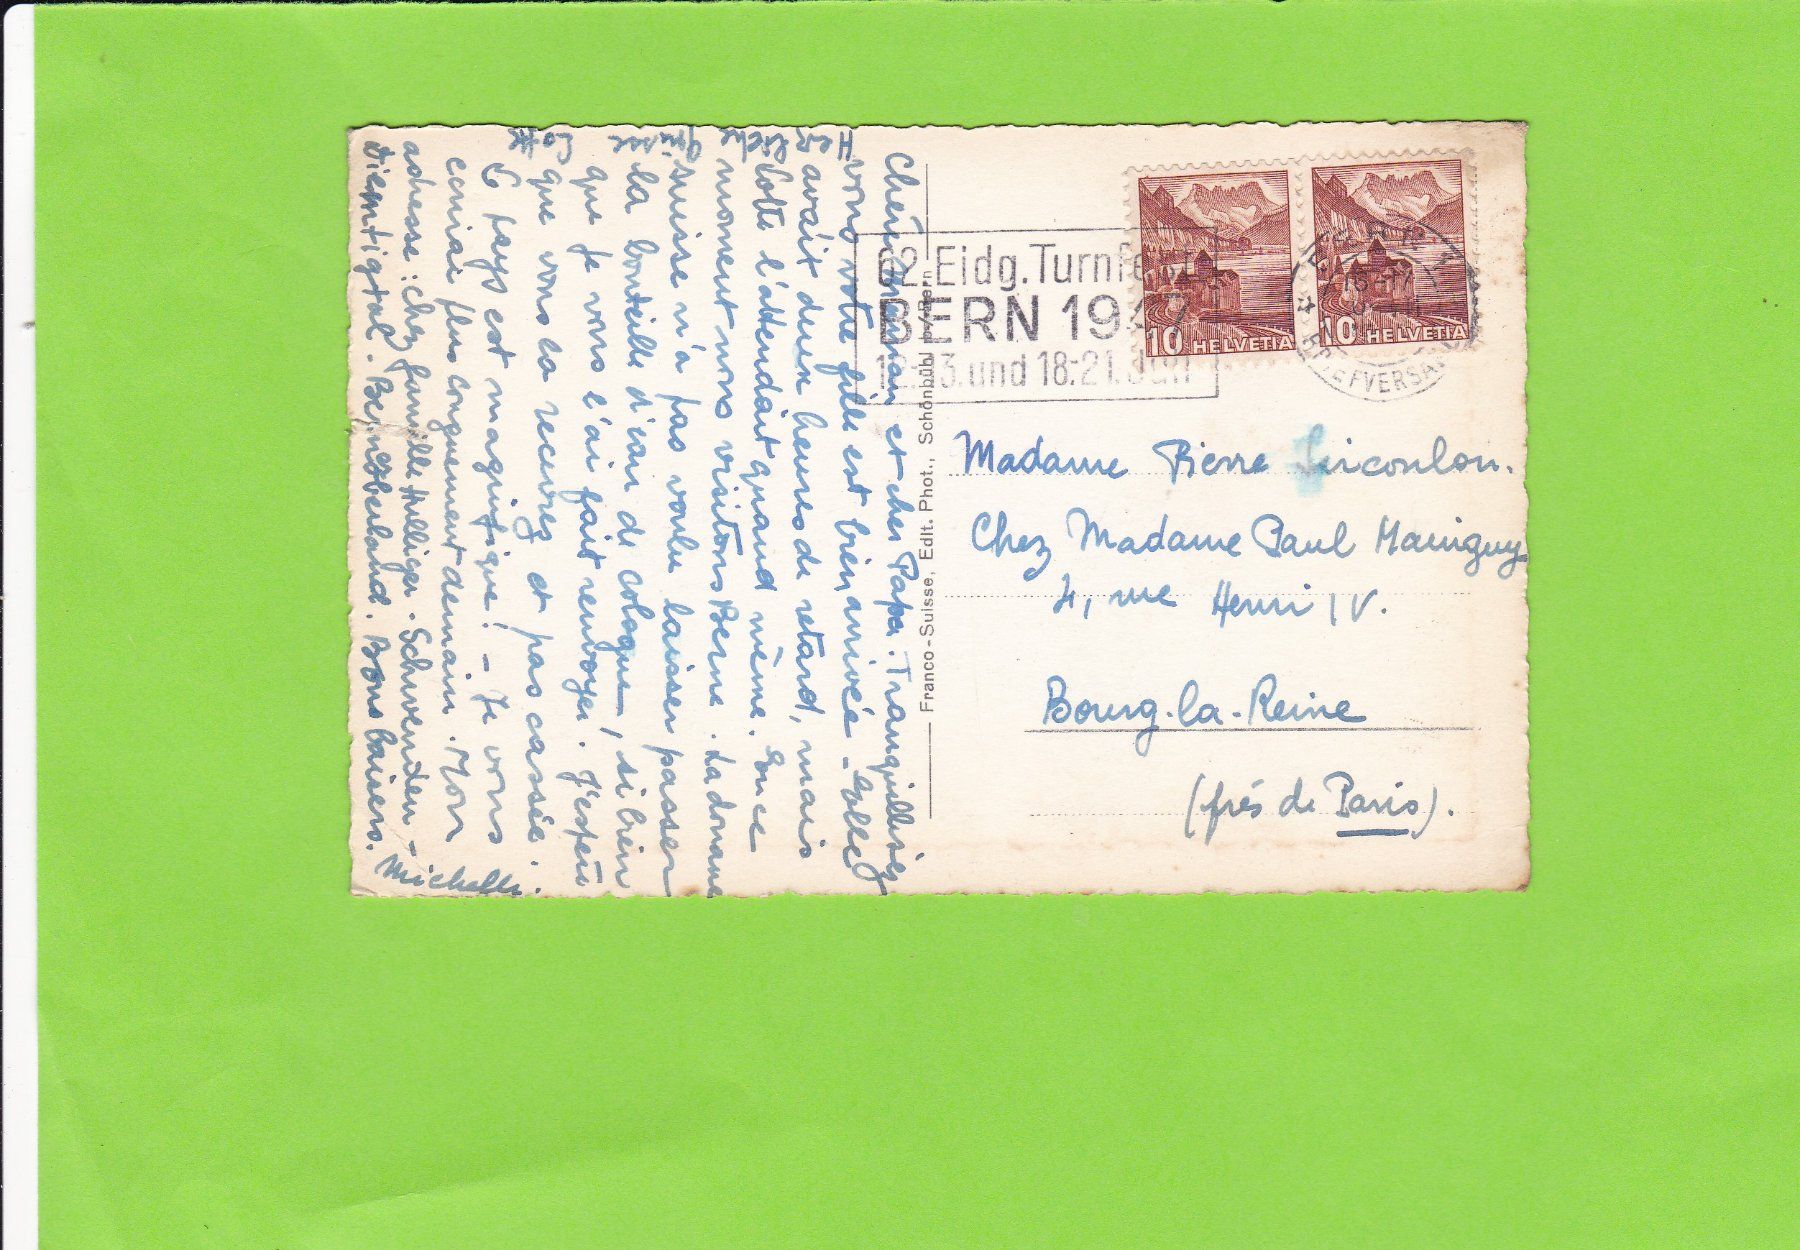 Chère Maman et cher Papa. Tranquillisez
vous votre fille est bien arrivée. Elle
avait deux heures de retard, mais
Lotte l'attendait quand même. En ce
moment nous visitons Berne. La douane
suisse n'a pas voulu laisser passer
la bouteille d'eau de cologne, si bien
que je vous l'ai fait renvoyer. J'espère
que vous la recevrez et pas cassée.
Ce pays est magnifique! - Je vous
écrirai plus longuement demain. Mon
adresse: chez famille Hulliger. Schwenden -
Diemtigtal. Berner Oberland. Bons baisers.
Michelle.
Herzliche
Grüsse
Lotte
Franco-Suisse, Edit. Phot., Schönbühl p/Bern
62. Eidg. Turnfest
BERN 1947
12.-13. und 18:21. Juni
10 HELVETIA
10 HELVETIA
BRIEFVERSAND
Madame Pierre
Chez Madame Paul Mainguy
4, rue Henri IV.
Bourg-la-Reine
(près de Paris).